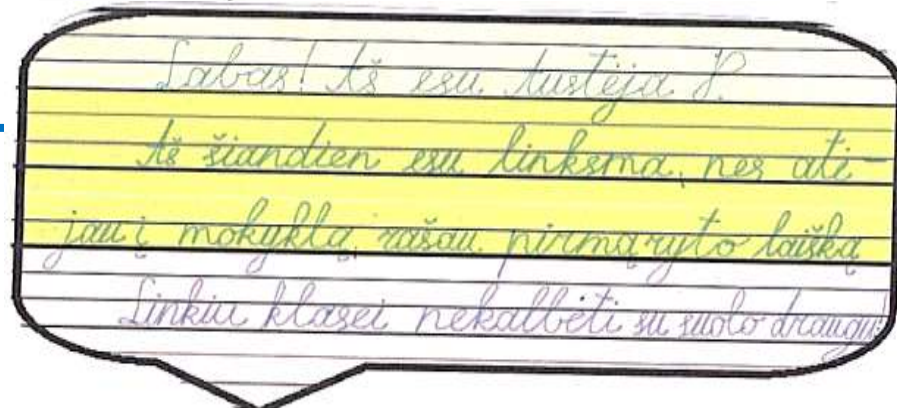 Labas! Aš esu Austėja P.
Aš šiandien esu linksma, nes ati-
jau į mokyklą, rašau pirmą ryto laišką
Linkiu klasei nekalbėti su suolo draugu!